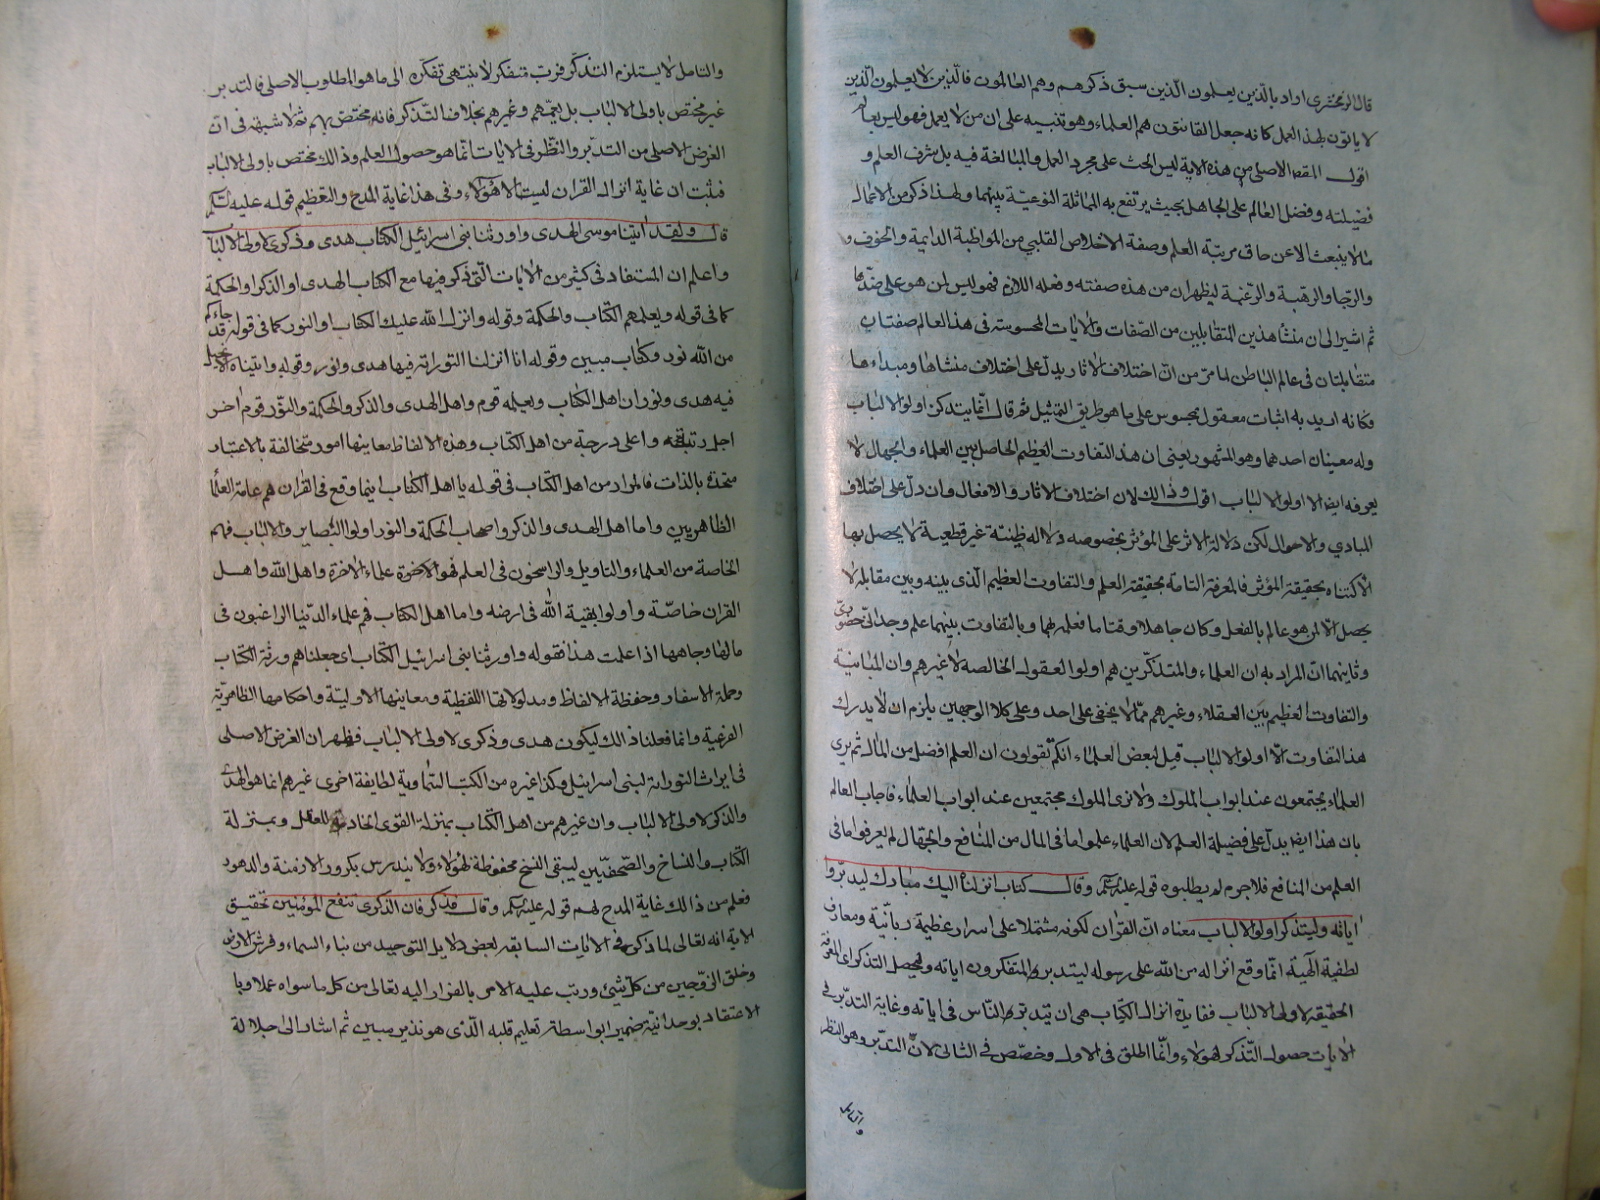 قال الزمخشري اراد بالّذين يعلمون الّذين سبق ذكرهم وهم العالمون فالّذين لا يعلمون الّذين
لا ياتون بهذا العمل كانه جعل القانتين هم العلماء وهو تنبيه على ان من لا يعمل فهو ليس بعالم
اقول المقصد الاصلى من هذه الاية ليس الحث على مجرد العمل والمبالغة فيه بل شرف العلم و
فضيلته وفضل العالم على الجاهل بحيث يرتفع به المماثلة النوعيّة بينهما ولهذا ذكر من الاعمال
ما لا ينبعث الا عن حاق مرتبة العلم وصفة الاخلاص القلبي من المواظبة الدائمة والخوف و
والرجا والرهبة والرغبة ليظهر ان من هذه صفته وفعله اللازم فهو ليس لمن هو على ضدّها
ثم اشير الى ان منشأ هذين المتقابلين من الصّفات والايات المحسوسة فى هذا العالم صفتان
متقابلتان فى عالم الباطن لما مرّ من انّ اختلاف الاثار يدلّ على اختلاف منشاها ومبداءها
فكانه اريد به اثبات معقول بمحسوس على ما هو طريق التمثيل ثم قال انّما يتذكر اولوا الالباب
وله معنيان احدهما وهو المشهور يعنى ان هذا التفاوت العظيم الحاصل بين العلماء والجهال لا
يعرفه ايضا الا اولوا الالباب اقول وذالك لان اختلاف الاثار والافعال وان دلّ على اختلاف
المبادي والاحوال لكن دلالة الاثر على المؤثر بخصوصه دلاله ظنيّة غير قطعية لا يحصل بها
الاكتناه بحقيقة المؤثر فالمعرفة التامة بحقيقة العلم والتفاوت العظيم الّذى بينه وبين مقابله لا
يحصل الّا لمن هو عالم بالفعل وكان جاهلا وقتا ما فعلمه لهما وبالتفاوت بينهما علم وجدانّى حضورىّ
وثانيهما انّ المراد به ان العلماء والمتذكّرين هم اولوا العقول الخالصه لا غيرهم وان المباينة
والتفاوت العظيم بين العقلاء وغيرهم ممّا لا يخفى على احد وعلى كلا الوجهين يلزم ان لا يدرك
هذا التفاوت الّا اولوا الالباب قيل لبعض العلماء انكم تقولون ان العلم افضل من المال ثم يرى
العلماء يجتمعون عند ابواب الملوك ولا نرى الملوك مجتمعين عند ابواب العلماء فاجاب العالم
بان هذا ايضا يدلّ على فضيلة العلم لان العلماء علموا ما فى المال من المنافع والجهال لم يعرفوا ما فى
العلم من المنافع فلا جرم لم يطلبوه قوله وقال كتاب انزلناه اليك مبارك ليدبّروا
اياته وليتذكر اولوا الالباب معناه انّ القران لكونه مشتملا على اسرار عظيمة ربانّية ومعارف
لطفية الهية انّما وقع انزاله من الله على رسوله ليتدبره المتفكرون اياته وليحصل التذكر اى المعرفة
الحقيقه لاولى الالباب ففايدة انزال الكتاب هى ان يتدبره النّاس فى اياته وغاية التدبّر فى
الايات حصول التّذكر لهولاء وانّما اطلق فى الاول وخصّص فى الثانى لانّ التدبّر وهو النظر
والتامل لا يستلزم التذكّر فربّ متفكر لا ينتهى تفكّره الى ما هو المطلوب الاصلى فالتدبر
غير مختص باولى الالباب بل يعمّهم وغيرهم بخلاف التّذكر فانه مختص بهم ثم لا شبهة فى انّ
الغرض الاصلى من التدبّر والنّظر فى الايات انّما هو حصول العلم وذالك مختص باولى الالباب
فثبت ان غاية انزال القران ليست الا هولاء وفى هذا غاية المدح والتعظيم قوله عليه
قال ولقد اتينا موسى الهدى واورثنا بنى اسرائيل الكتاب هدى وذكرى لاولى الالباب
واعلم ان المستفاد فى كثير من الايات الّتى ذكر فيها مع الكتاب الهدى او الذكر او الحكمة
كما فى قوله ويعلمهم الكتاب والحكمة وقوله وانزل الله عليك الكتاب او النور كما فى قوله قد جاءكم
من الله نور وكتاب مبين وقوله انا انزلنا التوراة فيها هدى ونور وقوله واتيناه الانجيل
فيه هدى ونور ان اهل الكتاب ويعلمه قوم واهل الهدى والذكر والحكمة والنوّر قوم اخر
اجل رتبة واعلى درجة من اهل الكتاب وهذه الالفاظ معاينها امور متخالفة بالاعتبار
متحدة بالذات فالمراد من اهل الكتاب فى قوله يا اهل الكتاب اينما وقع فى القران هم عامة العلماء
الظاهريين واما اهل الهدى والذكر واصحاب الحكمة والنور اولوا البصاير والالباب فهم
الخاصة من العلماء والتاويل والراسخون فى العلم فهو الاخوة علماء الاخرة واهل الله واهل
القران خاصّة واولوا بقية الله فى ارضه واما اهل الكتاب فهم علماء الدّنيا الراغبون فى
مالها وجاهها اذا علمت هذا فقوله واورثنا بنى اسرائيل الكتاب اى جعلناهم ورثة الكتاب
وحملة الاسفار وحفظة الالفاظ ومدلولاتها اللفظية ومعاينها الاوليّة واحكامها الظاهريّة
الفرعيّة وانما فعلنا ذالك ليكون هدى وذكرى لاولى الالباب فظهر ان الغرض الاصلى
فى ايراث التوراة لبنى اسرائيل وكذا غيره من الكتب السّماوية لطايفة اخرى غيرهم انما هو الهدى
والذكر لاولى الالباب وان غيرهم من اهل الكتاب بمنزلة القوى الخادمة للعقل وبمنزلة
الكتّاب والنساخ والصّحفيّين ليبقى النسخ محفوظة لهولاء ولا يندرس بكرور الازمنة والدهور
فعلم من ذالك غاية المدح لهم قوله وقال فذكر فان الذكرى تنفع المومنين تحقيق
الاية انه تعالى لما ذكر فى الايات السابقه بعض دلايل التوحيد من بناء السماء وفرش الارض
وخلق الزوّجين من كلّ شئ ورتب عليه الامر بالفرار اليه تعالى من كل ما سواه عملا وبا
الاعتقاد بوحدانيّة ضمير ابواسطة تعليم قلبه الّذى هو نذير مبين ثم اشار الى جلالة